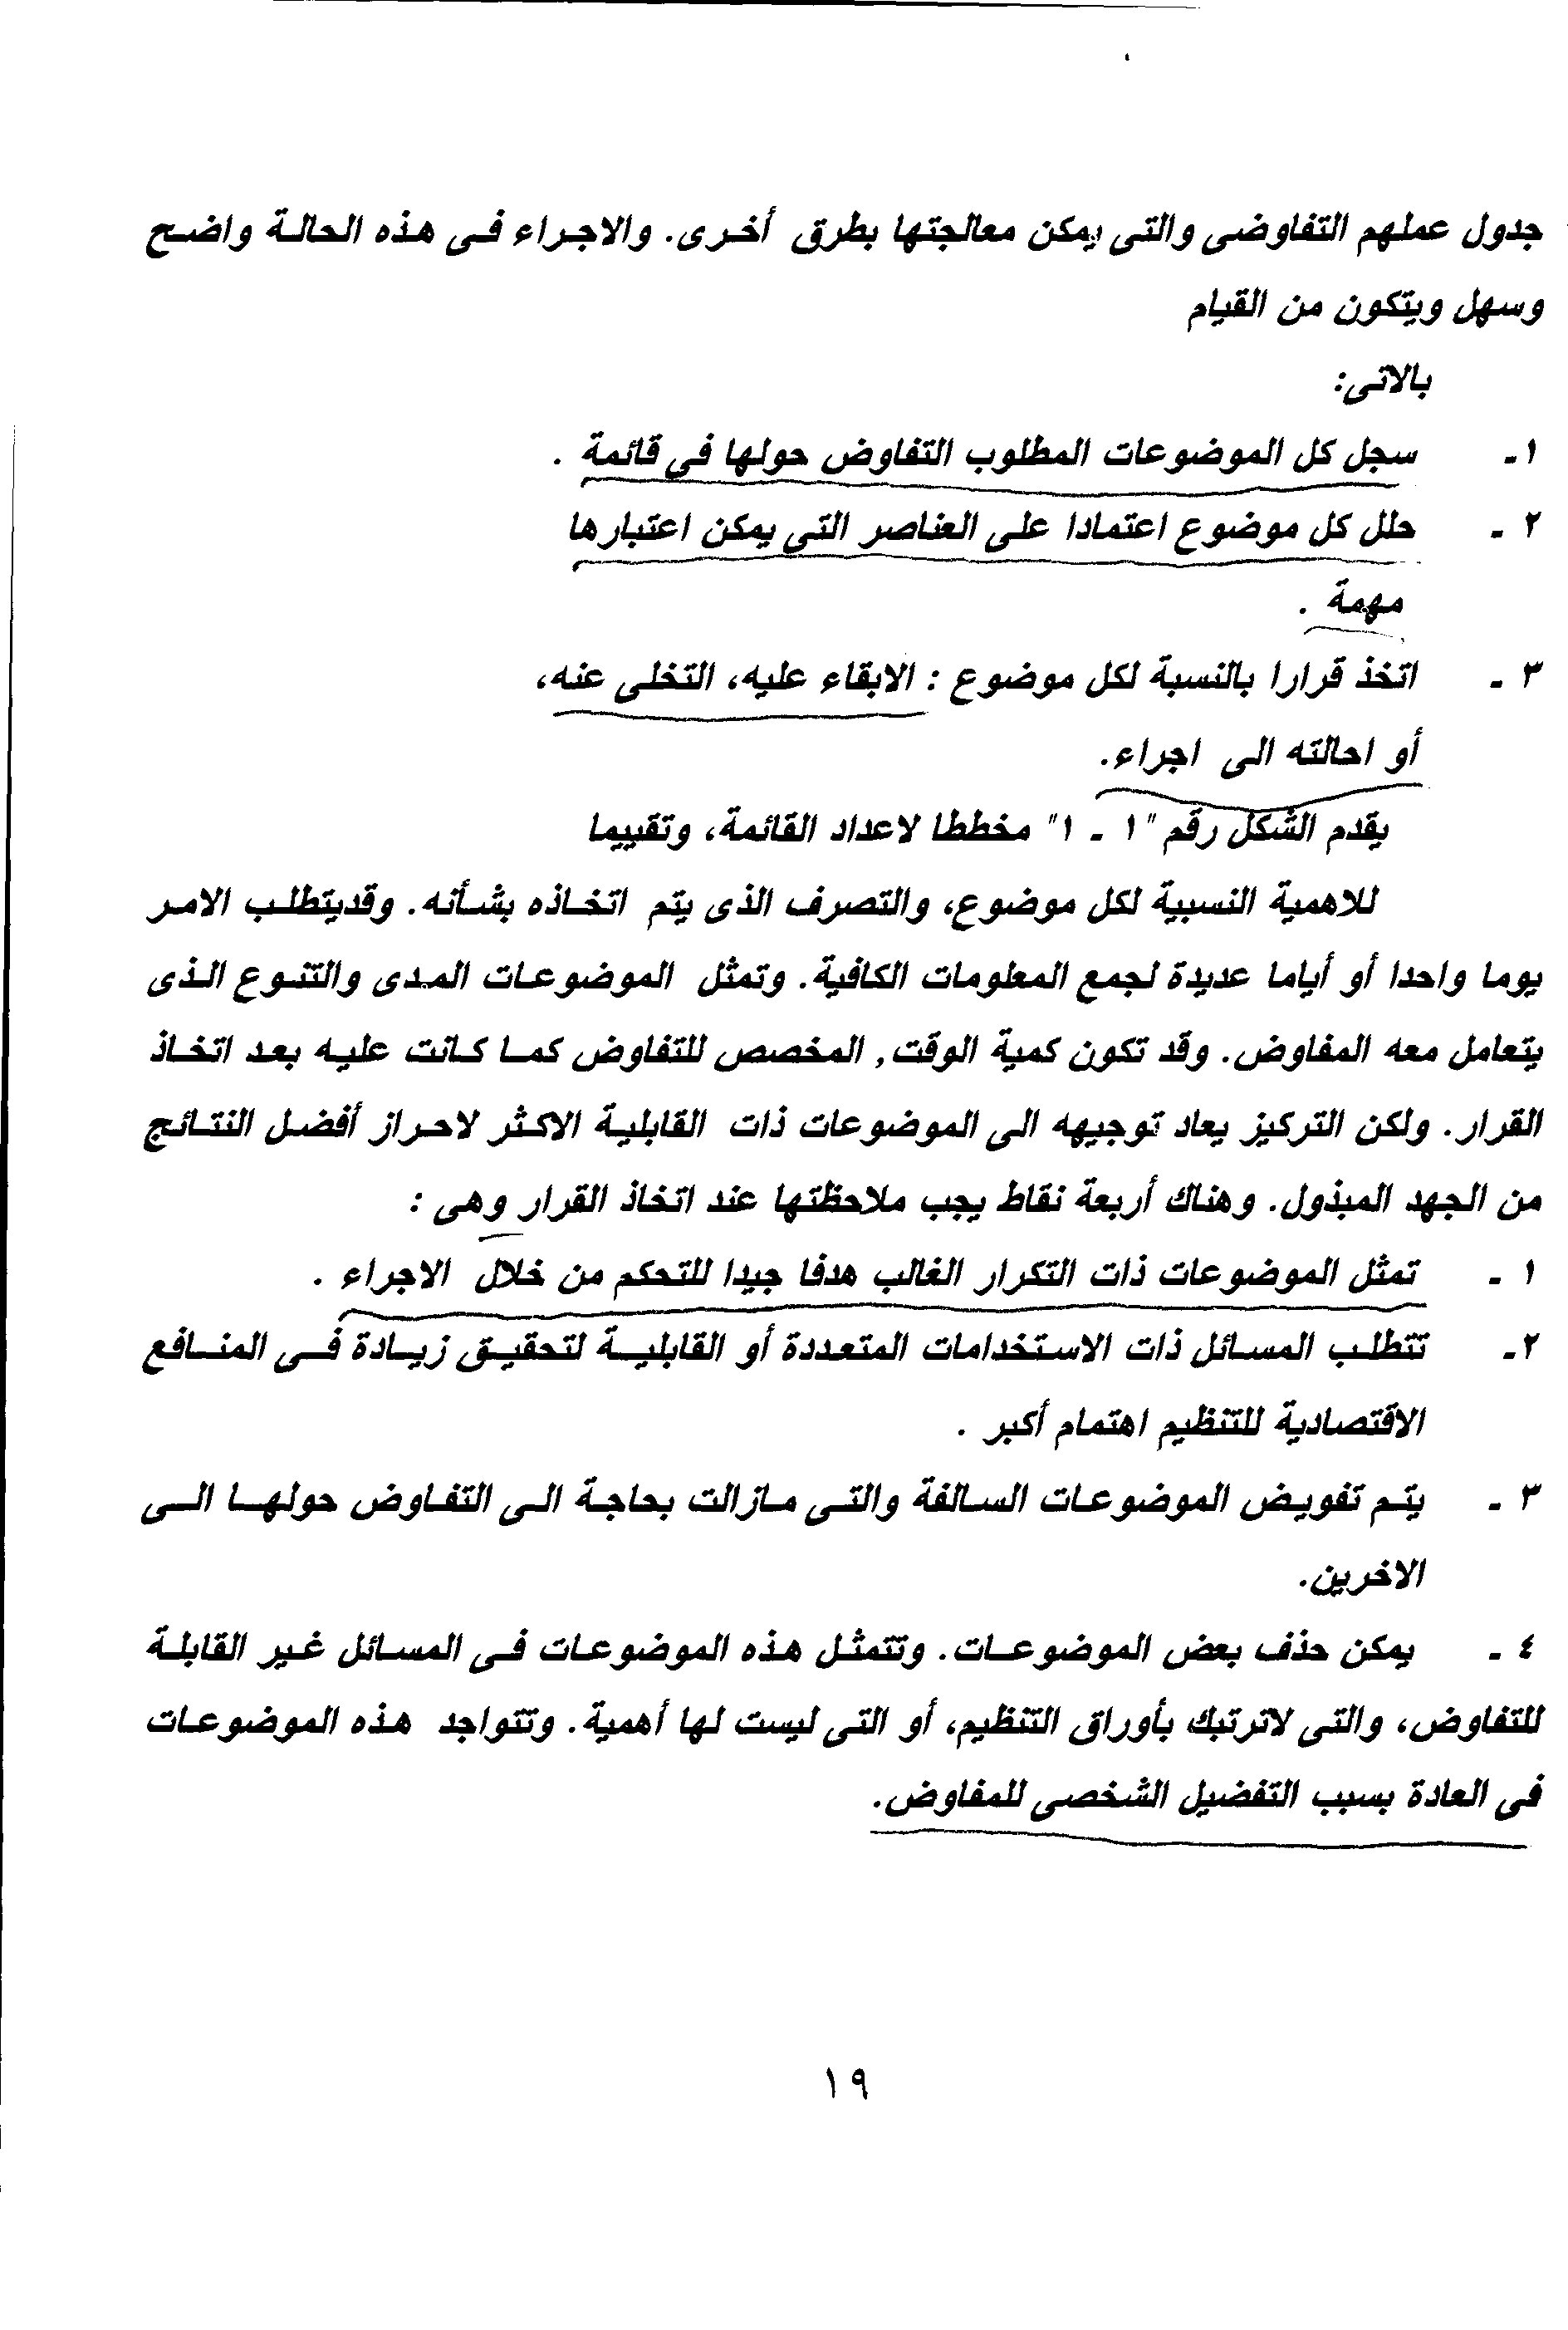 جدول عملهم التفاوضى والتى يمكن معالجتها بطرق أخرى. والاجراء فى هذه الحالة واضح
وسهل ويتكون من القيام
بالاتى:
١- سجل كل الموضوعات المطلوب التفاوض حولها فى قائمة .
٢ - حلل كل موضوع اعتمادا على العناصر التى يمكن اعتبارها
مهمة .
٣ - اتخذ قرارا بالنسبة لكل موضوع : الابقاء عليه، التخلى عنه،
أو احالته الى اجراء.
يقدم الشكل رقم "١ - ١" مخططا لاعداد القائمة، وتقييما
للاهمية النسبية لكل موضوع، والتصرف الذى يتم اتخاذه بشأنه. وقديتطلب الامر
يوما واحدا أو أياما عديدة لجمع المعلومات الكافية. وتمثل الموضوعات المدى والتنوع الذى
يتعامل معه المفاوض. وقد تكون كمية الوقت, المخصص للتفاوض كما كانت عليه بعد اتخاذ
القرار. ولكن التركيز يعاد توجيهه الى الموضوعات ذات القابلية الاكثر لاحراز أفضل النتائج
من الجهد المبذول. وهناك أربعة نقاط يجب ملاحظتها عند اتخاذ القرار وهى :
١ - تمثل الموضوعات ذات التكرار الغالب هدفا جيدا للتحكم من خلال الاجراء .
٢- تتطلب المسائل ذات الاستخدامات المتعددة أو القابلية لتحقيق زيادة فى المنافع
الاقتصادية للتنظيم اهتمام أكبر .
٣ - يتم تفويض الموضوعات السالفة والتى مازالت بحاجة الى التفاوض حولها الى
الاخرين.
٤ - يمكن حذف بعض الموضوعات. وتتمثل هذه الموضوعات فى المسائل غير القابلة
للتفاوض، والتى لاترتبك بأوراق التنظيم، أو التى ليست لها أهمية. وتتواجد هذه الموضوعات
فى العادة بسبب التفضيل الشخصى للمفاوض.
١٩